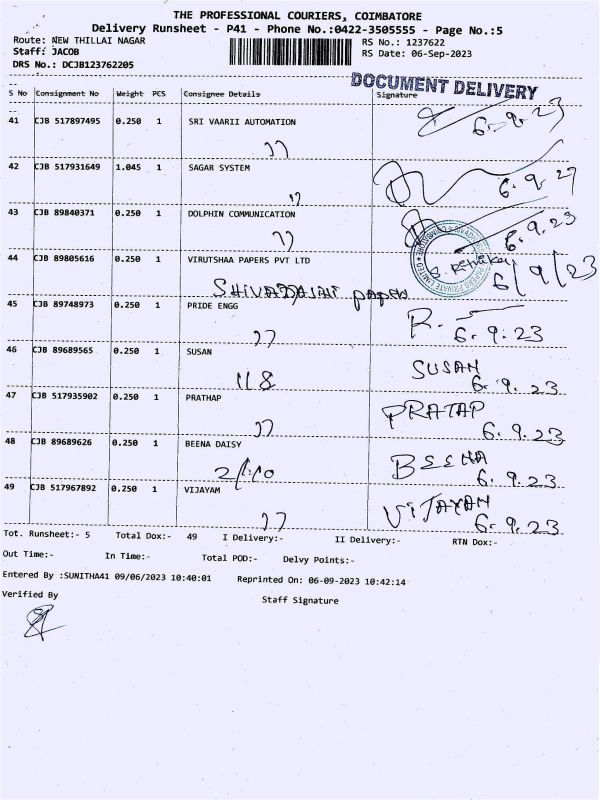 THE PROFESSIONAL COURIERS, COIMBATORE
Delivery Runsheet - P41 - Phone No.:0422-3505555 - Page No.:5
Route: NEW THILLAI NAGAR
Staff: JACOB
DRS No.: DCJB123762205
RS No.: 1237622
RS Date: 06-Sep-2023
DOCUMENT DELIVERY
S No Consignment No Weight PCS Consignee Details Signature
41 CJB 517897495 0.250 1 SRI VAARII AUTOMATION
6.9.23
42 CJB 517931649 1.045 1 SAGAR SYSTEM
6.9.23
43 CJB 89840371 0.250 1 DOLPHIN COMMUNICATION
6.9.23
44 CJB 89805616 0.250 1 VIRUTSHAA PAPERS PVT LTD
6/9/23
papers
45 CJB 89748973 0.250 1 PRIDE ENGG
R.
6.9.23
46 CJB 89689565 0.250 1 SUSAN
118
SUSAN
6.9.23
47 CJB 517935902 0.250 1 PRATHAP
PRATAP
6.9.23
48 CJB 89689626 0.250 1 BEENA DAISY
BEENA
6.9.23
49 CJB 517967892 0.250 1 VIJAYAM
VIJAYAN
6.9.23
Tot. Runsheet:- 5 Total Dox:- 49 I Delivery:- II Delivery:- RTN Dox:-
Out Time:- In Time:- Total POD:- Delvy Points:-
Entered By :SUNITHA41 09/06/2023 10:40:01 Reprinted On: 06-09-2023 10:42:14
Verified By Staff Signature